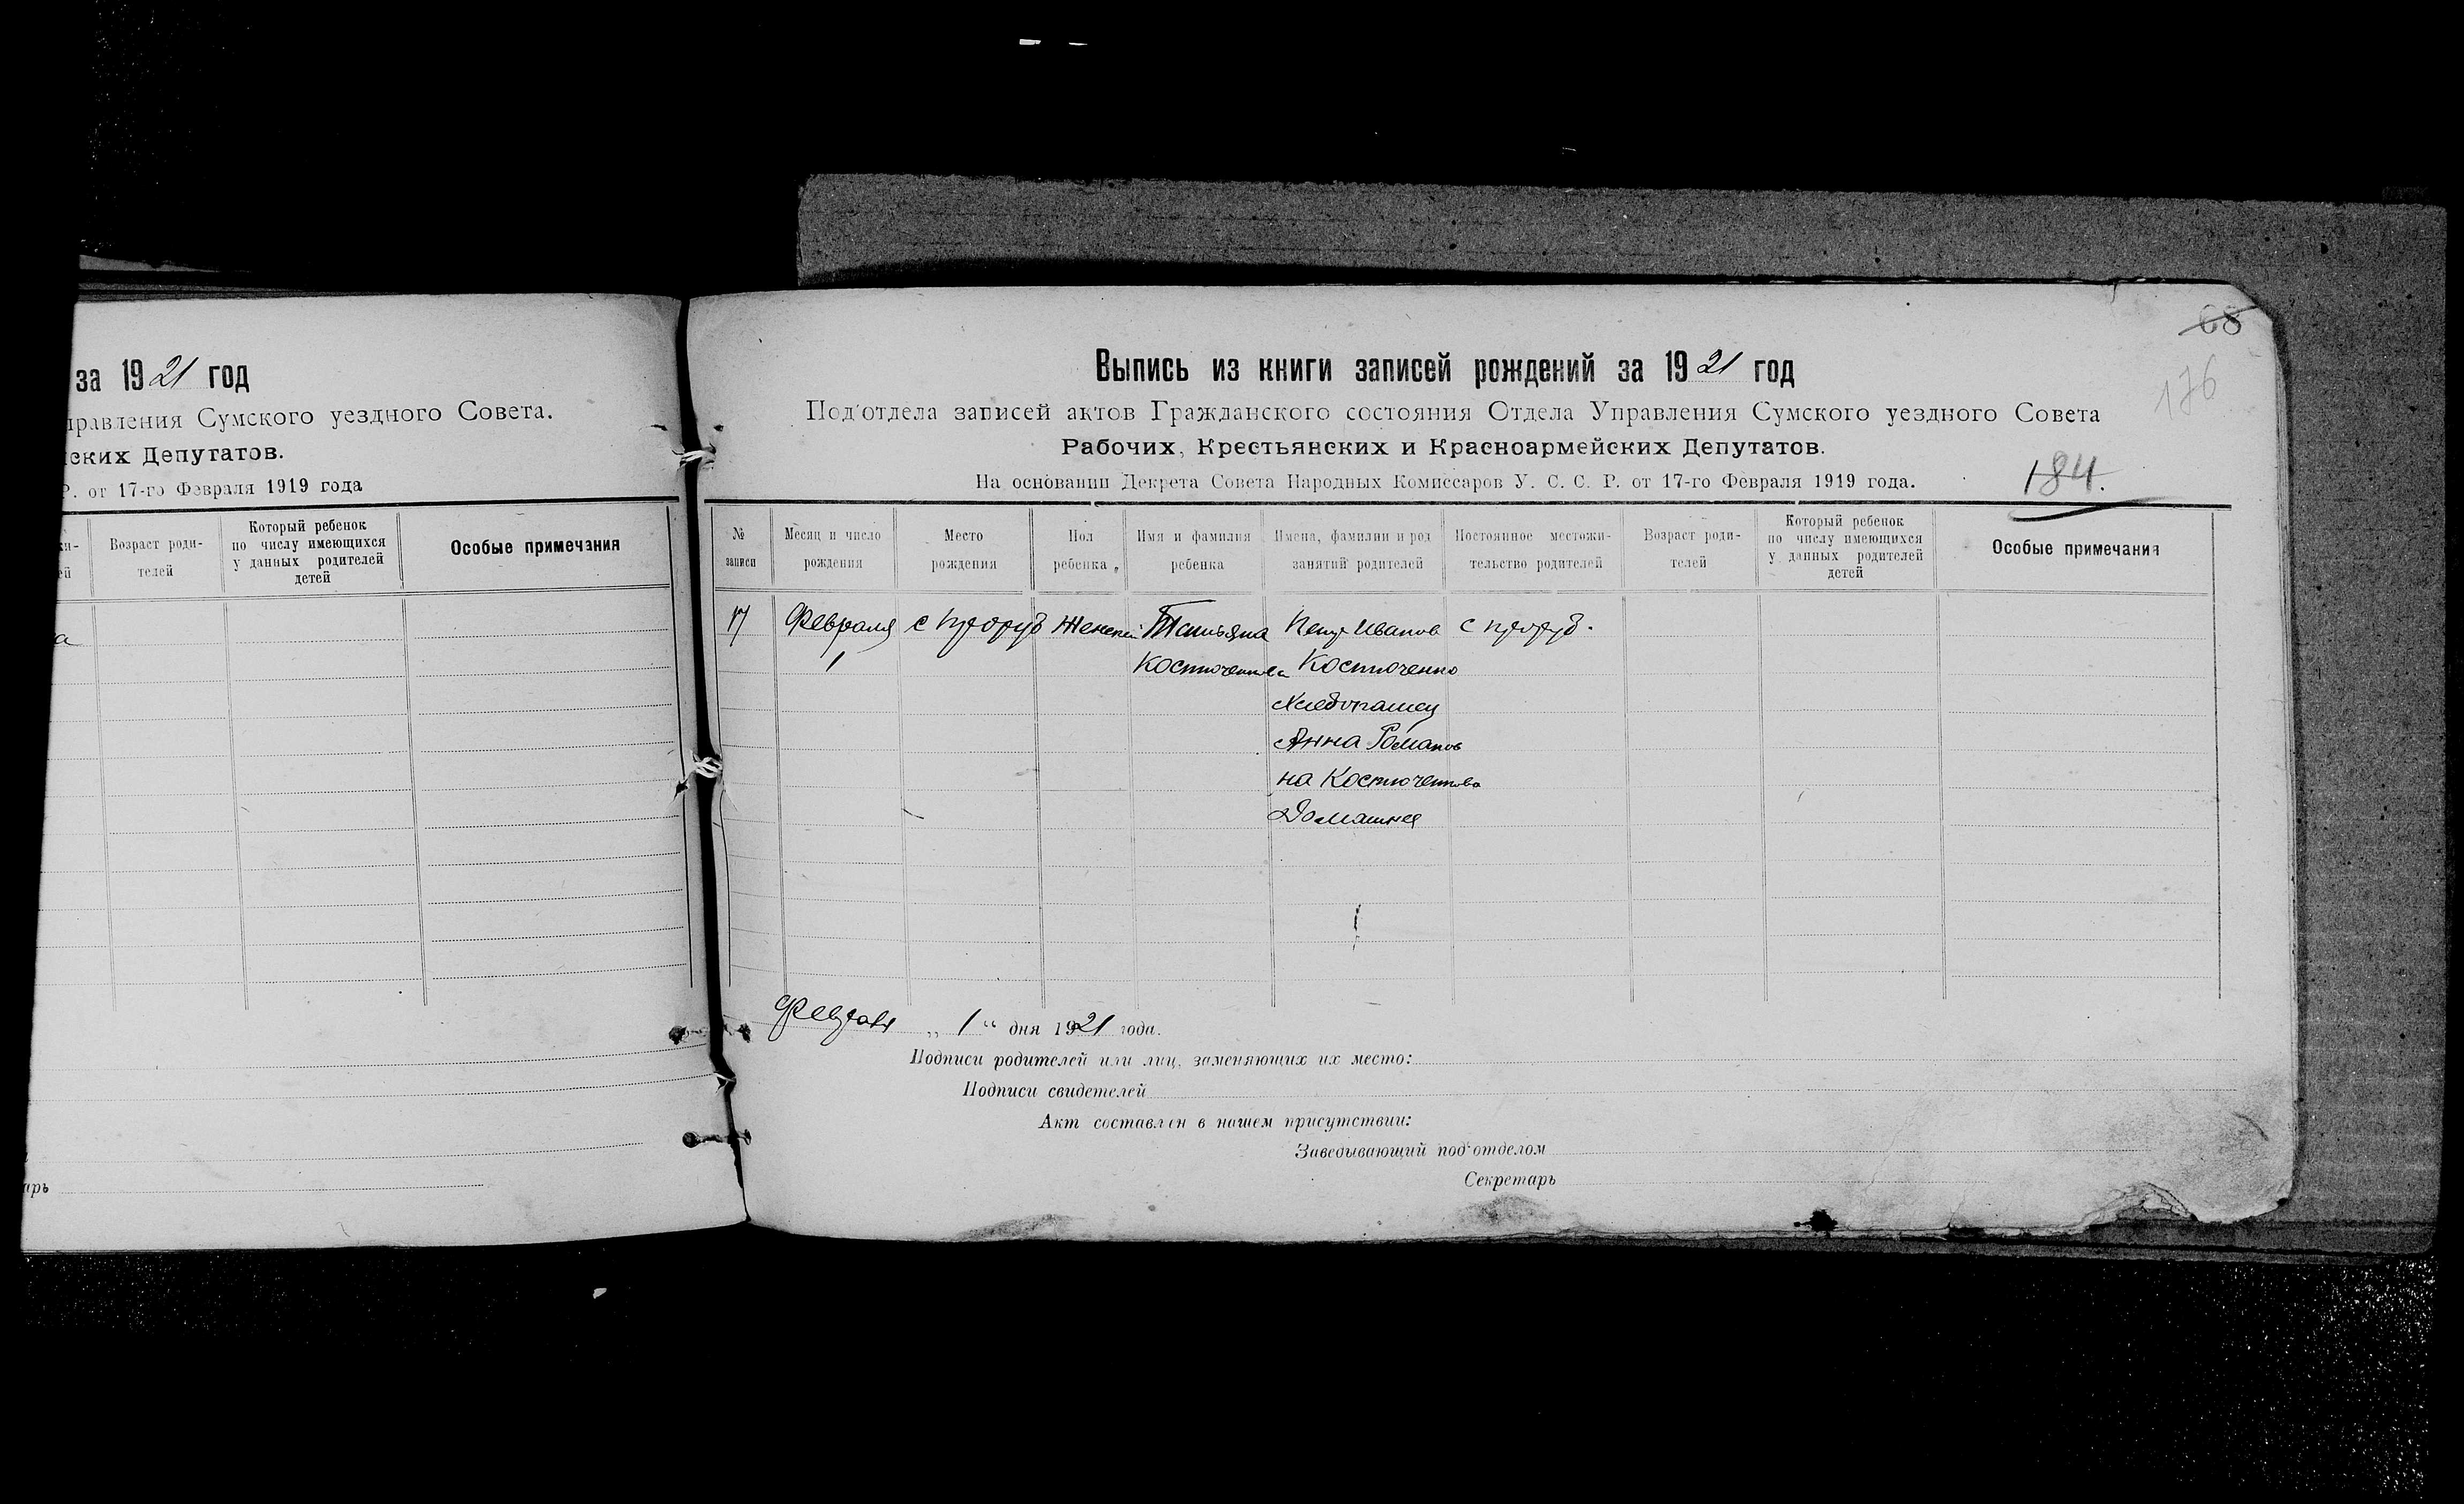 за 1921 год
правления Сумского уездного Совета.
ских Депутатов.
Р. от 17-го Февраля 1919 года
Возраст роди-
телей
Который ребенок
по числу имеющихся
у данных родителей
детей
Особые примечания
а
арь
68
176
184.
Выпись из книги записей рождений за 1921 год
Под'отдела записей актов Гражданского состояния Отдела Управления Сумского уездного Совета
Рабочих, Крестьянских и Красноармейских Депутатов.
На основании Декрета Совета Народных Комиссаров У. С. С. Р. от 17-го Февраля 1919 года.
№
записи
Месяц и число
рождения
Место
рождения
Пол
ребенка
Имя и фамилия
ребенка
Имена, фамилии и род
занятий родителей
Постоянное местожи-
тельство родителей
Возраст роди-
телей
Который ребенок
по числу имеющихся
у данных родителей
детей
Особые примечания
17 Февраля с Проруб Женский Татьяна Петр Иванов с Проруб.
1 Костюченкова Костюченко
Хлебопашец
Анна Романов
на Костюченкова
Домашняя
Февраля „ 1 “ дня 1921 года.
Подписи родителей или лиц, заменяющих их место:
Подписи свидетелей
Акт составлен в нашем присутствии:
Заведывающий под'отделом
Секретарь